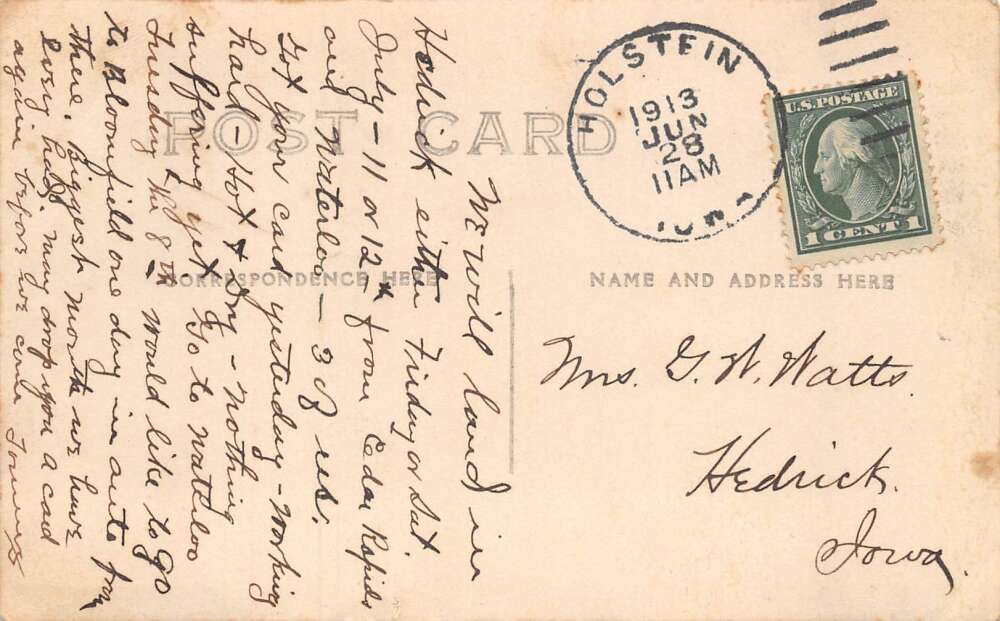 POST CARD
CORRESPONDENCE HERE
NAME AND ADDRESS HERE
HOLSTEIN
1913
JUN
28
11AM
IOWA
U.S. POSTAGE
1 CENT 1
Mrs. G. W. Watts.
Hedrick.
Iowa.
We will land in
Hedrick either Friday or Sat.
July - 11 or 12th from Cedar Rapids
and Waterloo - 3 of us.
Got your card yesterday - working
hard - Hot & Dry - nothing
suffering yet Go to Waterloo
Tuesday the 8th - Would like to go
to Bloomfield one day in auto from
there. Biggest month we have
every had, may drop you a card
again before we come